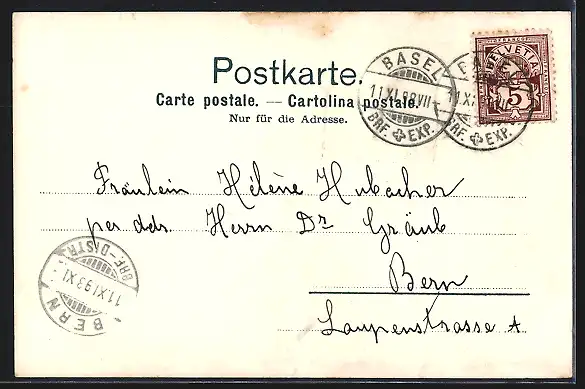 Postkarte.
Carte postale. — Cartolina postale.
Nur für die Adresse.
BASEL
11.XI.98.VII-
BRF. EXP.
HELVETIA
FRANCO
5
11.XI
BRF. EXP.
Fräulein Hélène Hubacher
per adr. Herrn Dr Gräub
Bern
Laupenstrasse
BERN
11.XI.98.XI-
BRF-DISTR.